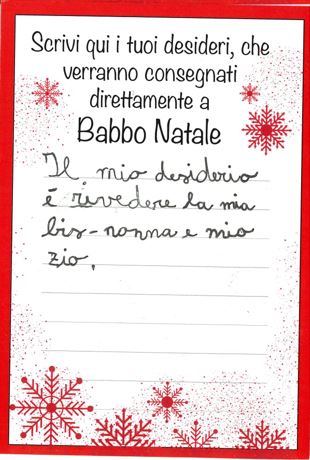 Scrivi qui i tuoi desideri, che
verranno consegnati
direttamente a
Babbo Natale
Il mio desiderio
è rivedere la mia
bis-nonna e mio
zio.